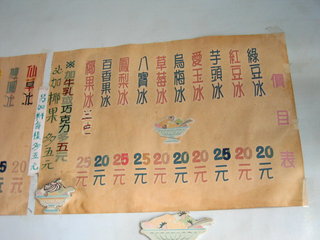 價目表
綠豆冰 20元
紅豆冰 20元
芋頭冰 25元
愛玉冰 20元
烏梅冰 20元
草莓冰 20元
八寶冰 25元
鳳梨冰 25元
百香果冰 20元
椰果冰 25元
※加牛乳或巧克力多五元
※加椰果多五元
仙草冰 20元